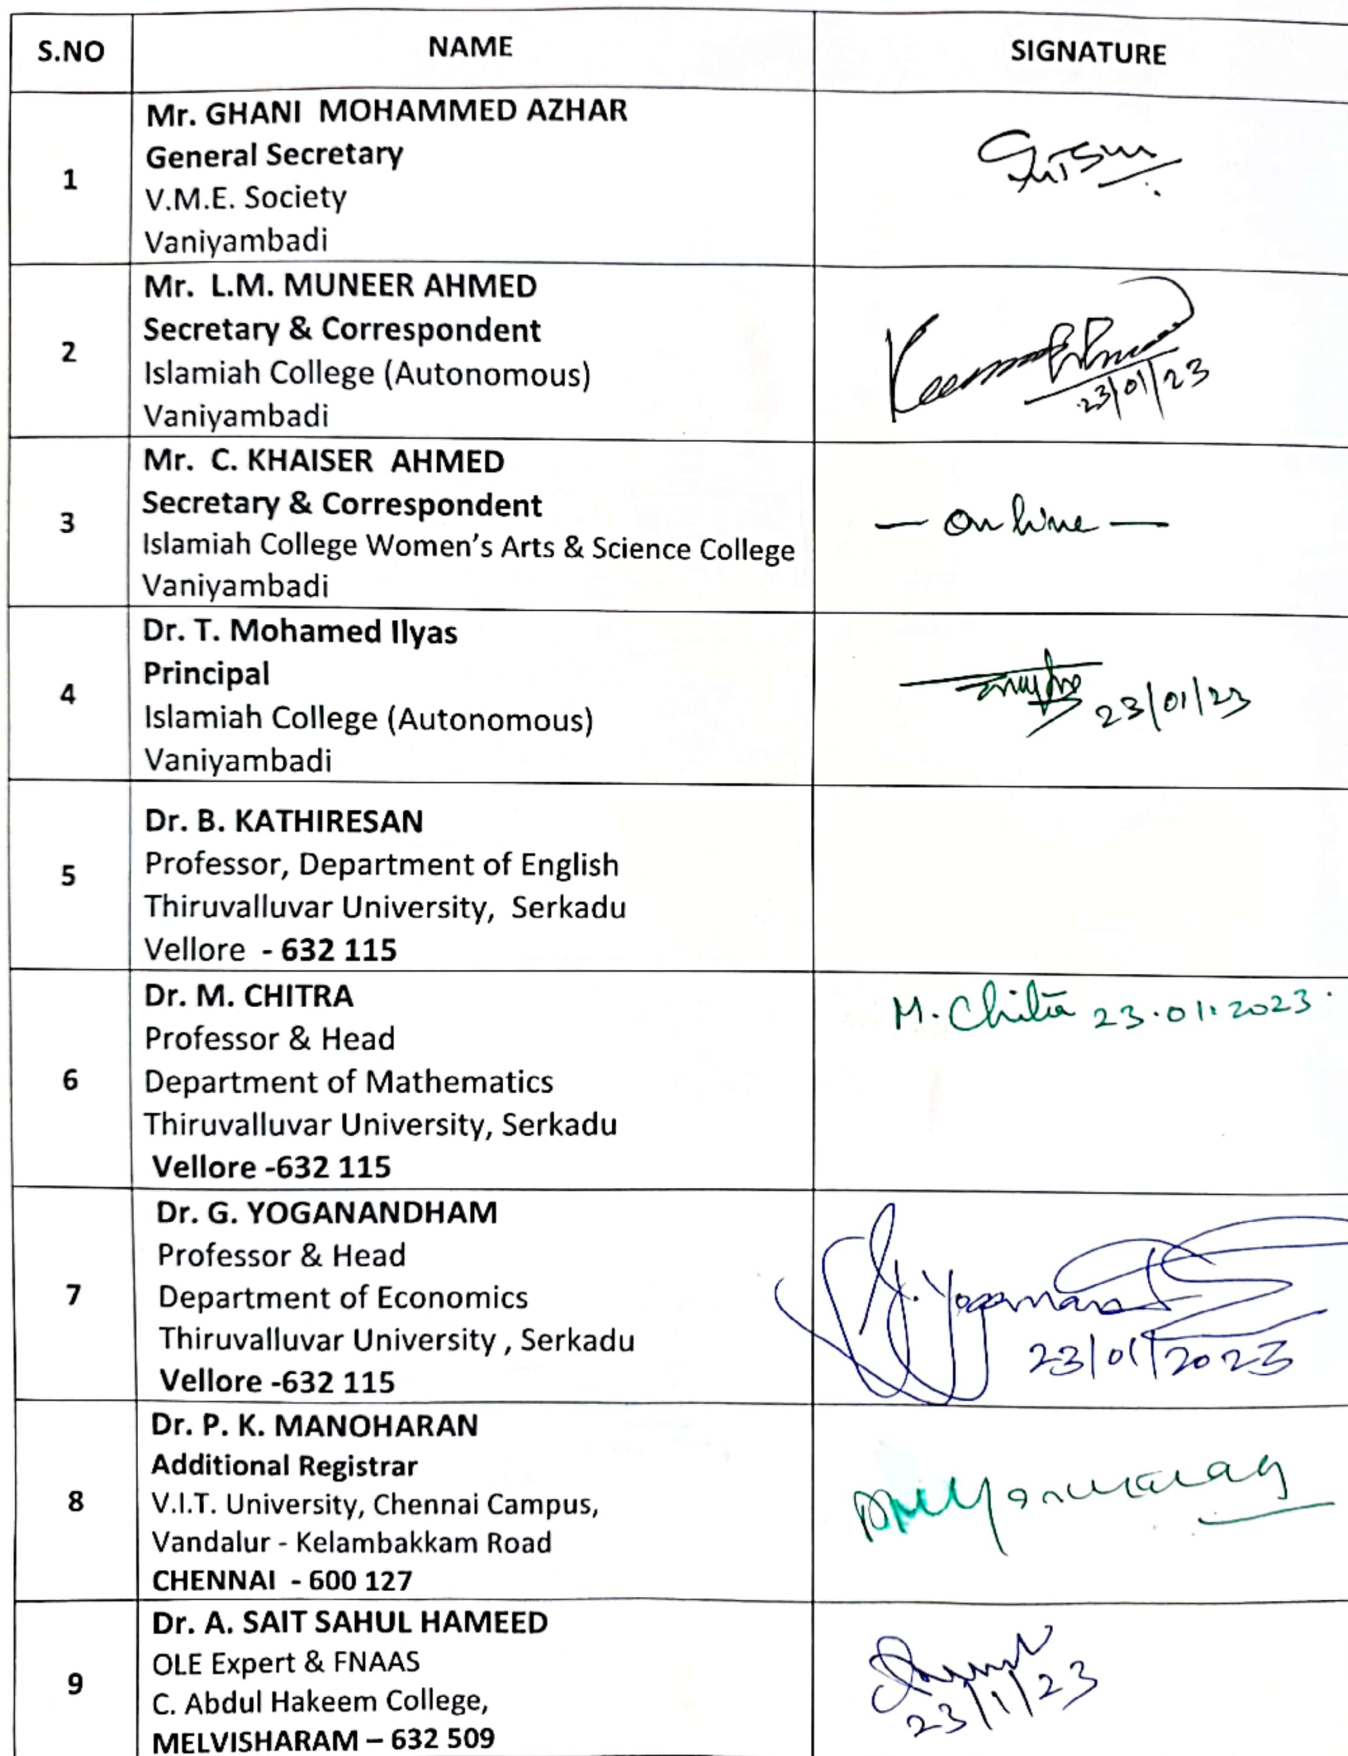 S.NO NAME SIGNATURE
1
Mr. GHANI MOHAMMED AZHAR
General Secretary
V.M.E. Society
Vaniyambadi
2
Mr. L.M. MUNEER AHMED
Secretary & Correspondent
Islamiah College (Autonomous)
Vaniyambadi
23/01/23
3
Mr. C. KHAISER AHMED
Secretary & Correspondent
Islamiah College Women's Arts & Science College
Vaniyambadi
— online —
4
Dr. T. Mohamed Ilyas
Principal
Islamiah College (Autonomous)
Vaniyambadi
23/01/23
5
Dr. B. KATHIRESAN
Professor, Department of English
Thiruvalluvar University, Serkadu
Vellore - 632 115
6
Dr. M. CHITRA
Professor & Head
Department of Mathematics
Thiruvalluvar University, Serkadu
Vellore -632 115
M. Chitra 23.01.2023.
7
Dr. G. YOGANANDHAM
Professor & Head
Department of Economics
Thiruvalluvar University , Serkadu
Vellore -632 115
23/01/2023
8
Dr. P. K. MANOHARAN
Additional Registrar
V.I.T. University, Chennai Campus,
Vandalur - Kelambakkam Road
CHENNAI - 600 127
9
Dr. A. SAIT SAHUL HAMEED
OLE Expert & FNAAS
C. Abdul Hakeem College,
MELVISHARAM – 632 509
23/1/23